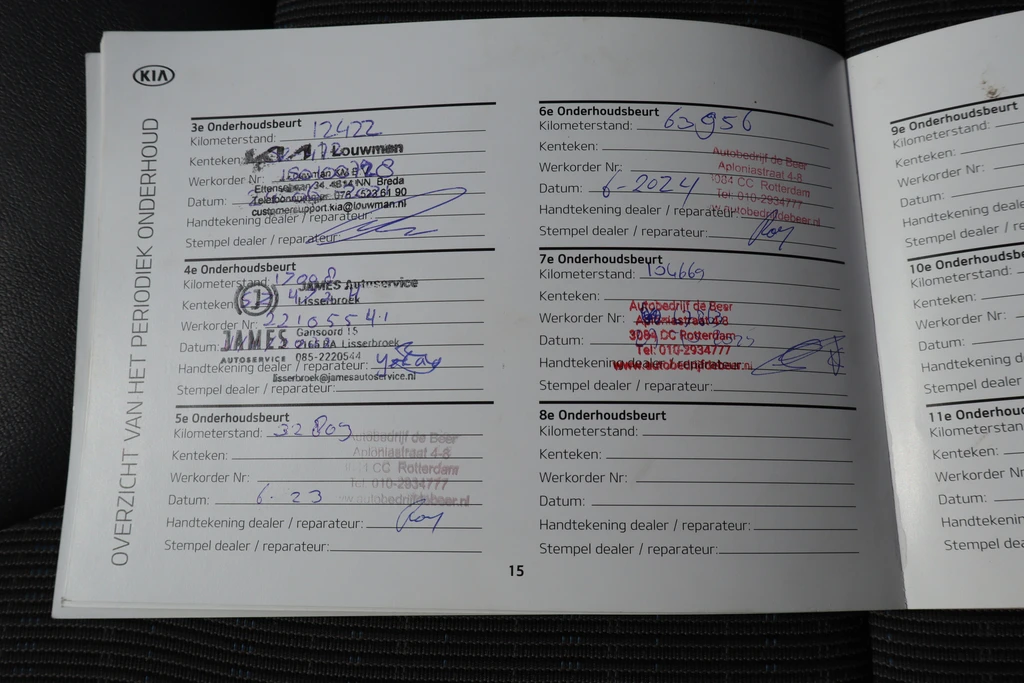 KIA
OVERZICHT VAN HET PERIODIEK ONDERHOUD
3e Onderhoudsbeurt
Kilometerstand: 12422
Kenteken:
Louwman
Werkorder Nr:
4814 NN Breda
Datum:
customersupport.kia@louwman.nl
Handtekening dealer / reparateur:
Stempel dealer / reparateur:
4e Onderhoudsbeurt
Kilometerstand: 17008
JAMES Autoservice
Kenteken:
Lisserbroek
Werkorder Nr: 22105541
JAMES
Gansoord 15
Datum:
2165 BA Lisserbroek
AUTOSERVICE 085-2220544
Handtekening dealer / reparateur:
lisserbroek@jamesautoservice.nl
Stempel dealer / reparateur:
5e Onderhoudsbeurt
Kilometerstand: 32809
Autobedrijf de Beer
Kenteken:
Aploniastraat 4-8
CC Rotterdam
Werkorder Nr:
Tel: 010-2934777
Datum: 6-23
www.autobedrijfdebeer.nl
Handtekening dealer / reparateur: Roy
Stempel dealer / reparateur:
6e Onderhoudsbeurt
Kilometerstand: 63956
Kenteken:
Autobedrijf de Beer
Aploniastraat 4-8
Werkorder Nr:
3084 CC Rotterdam
Datum: 6-2024
Tel: 010-2934777
www.autobedrijfdebeer.nl
Handtekening dealer / reparateur: Roy
Stempel dealer / reparateur:
7e Onderhoudsbeurt
Kilometerstand: 104669
Kenteken:
Autobedrijf de Beer
Werkorder Nr:
Aploniastraat 4-8
3084 CC Rotterdam
Datum:
Tel: 010-2934777
www.autobedrijfdebeer.nl
Handtekening dealer / reparateur:
Stempel dealer / reparateur:
8e Onderhoudsbeurt
Kilometerstand:
Kenteken:
Werkorder Nr:
Datum:
Handtekening dealer / reparateur:
Stempel dealer / reparateur:
15
9e Onderhoudsbeurt
Kilometerstand:
Kenteken:
Werkorder Nr:
Datum:
Handtekening deale
Stempel dealer / re
10e Onderhoudsbe
Kilometerstand:
Kenteken:
Werkorder Nr:
Datum:
Handtekening d
Stempel dealer
11e Onderhoud
Kilometerstan
Kenteken:
Werkorder Nr
Datum:
Handtekenin
Stempel dea